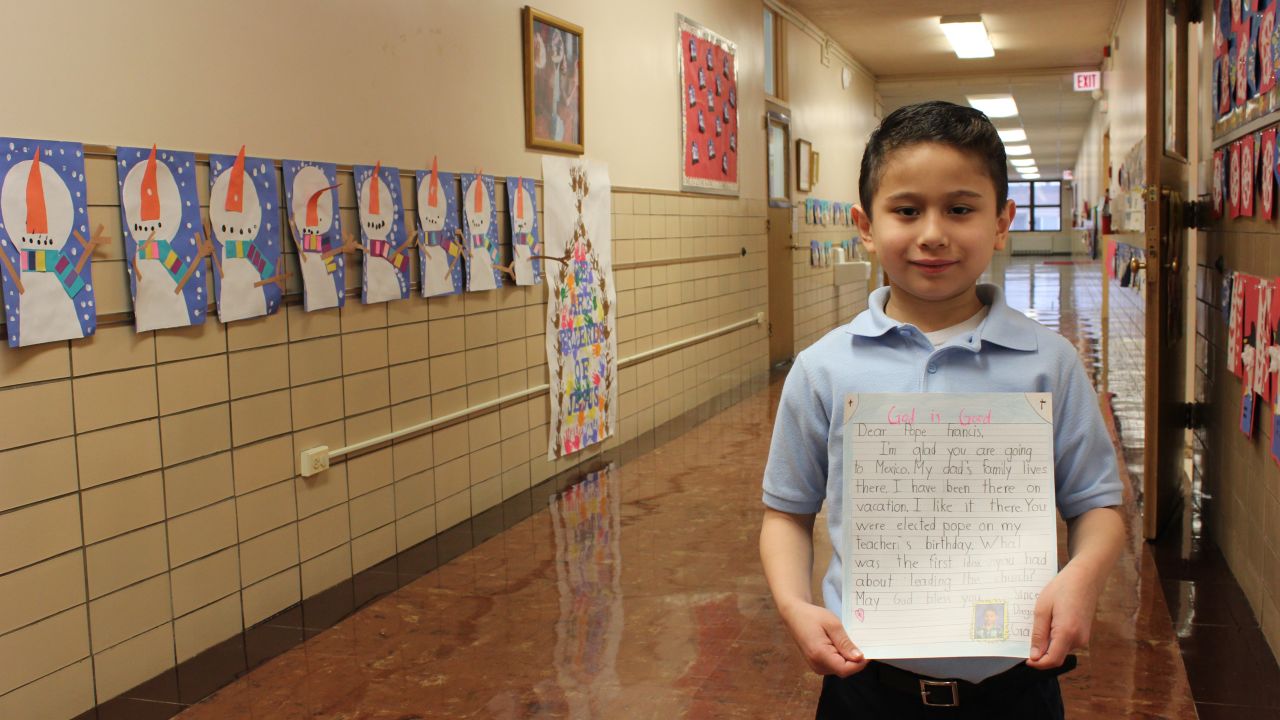 EXIT
FRIENDS
OF
JESUS
God is Good
Dear Pope Francis,
I'm glad you are going
to Mexico. My dad's family lives
there. I have been there on
vacation. I like it there. You
were elected pope on my
teacher's birthday. What
was the first idea you had
about leading the church?
May God bless you.